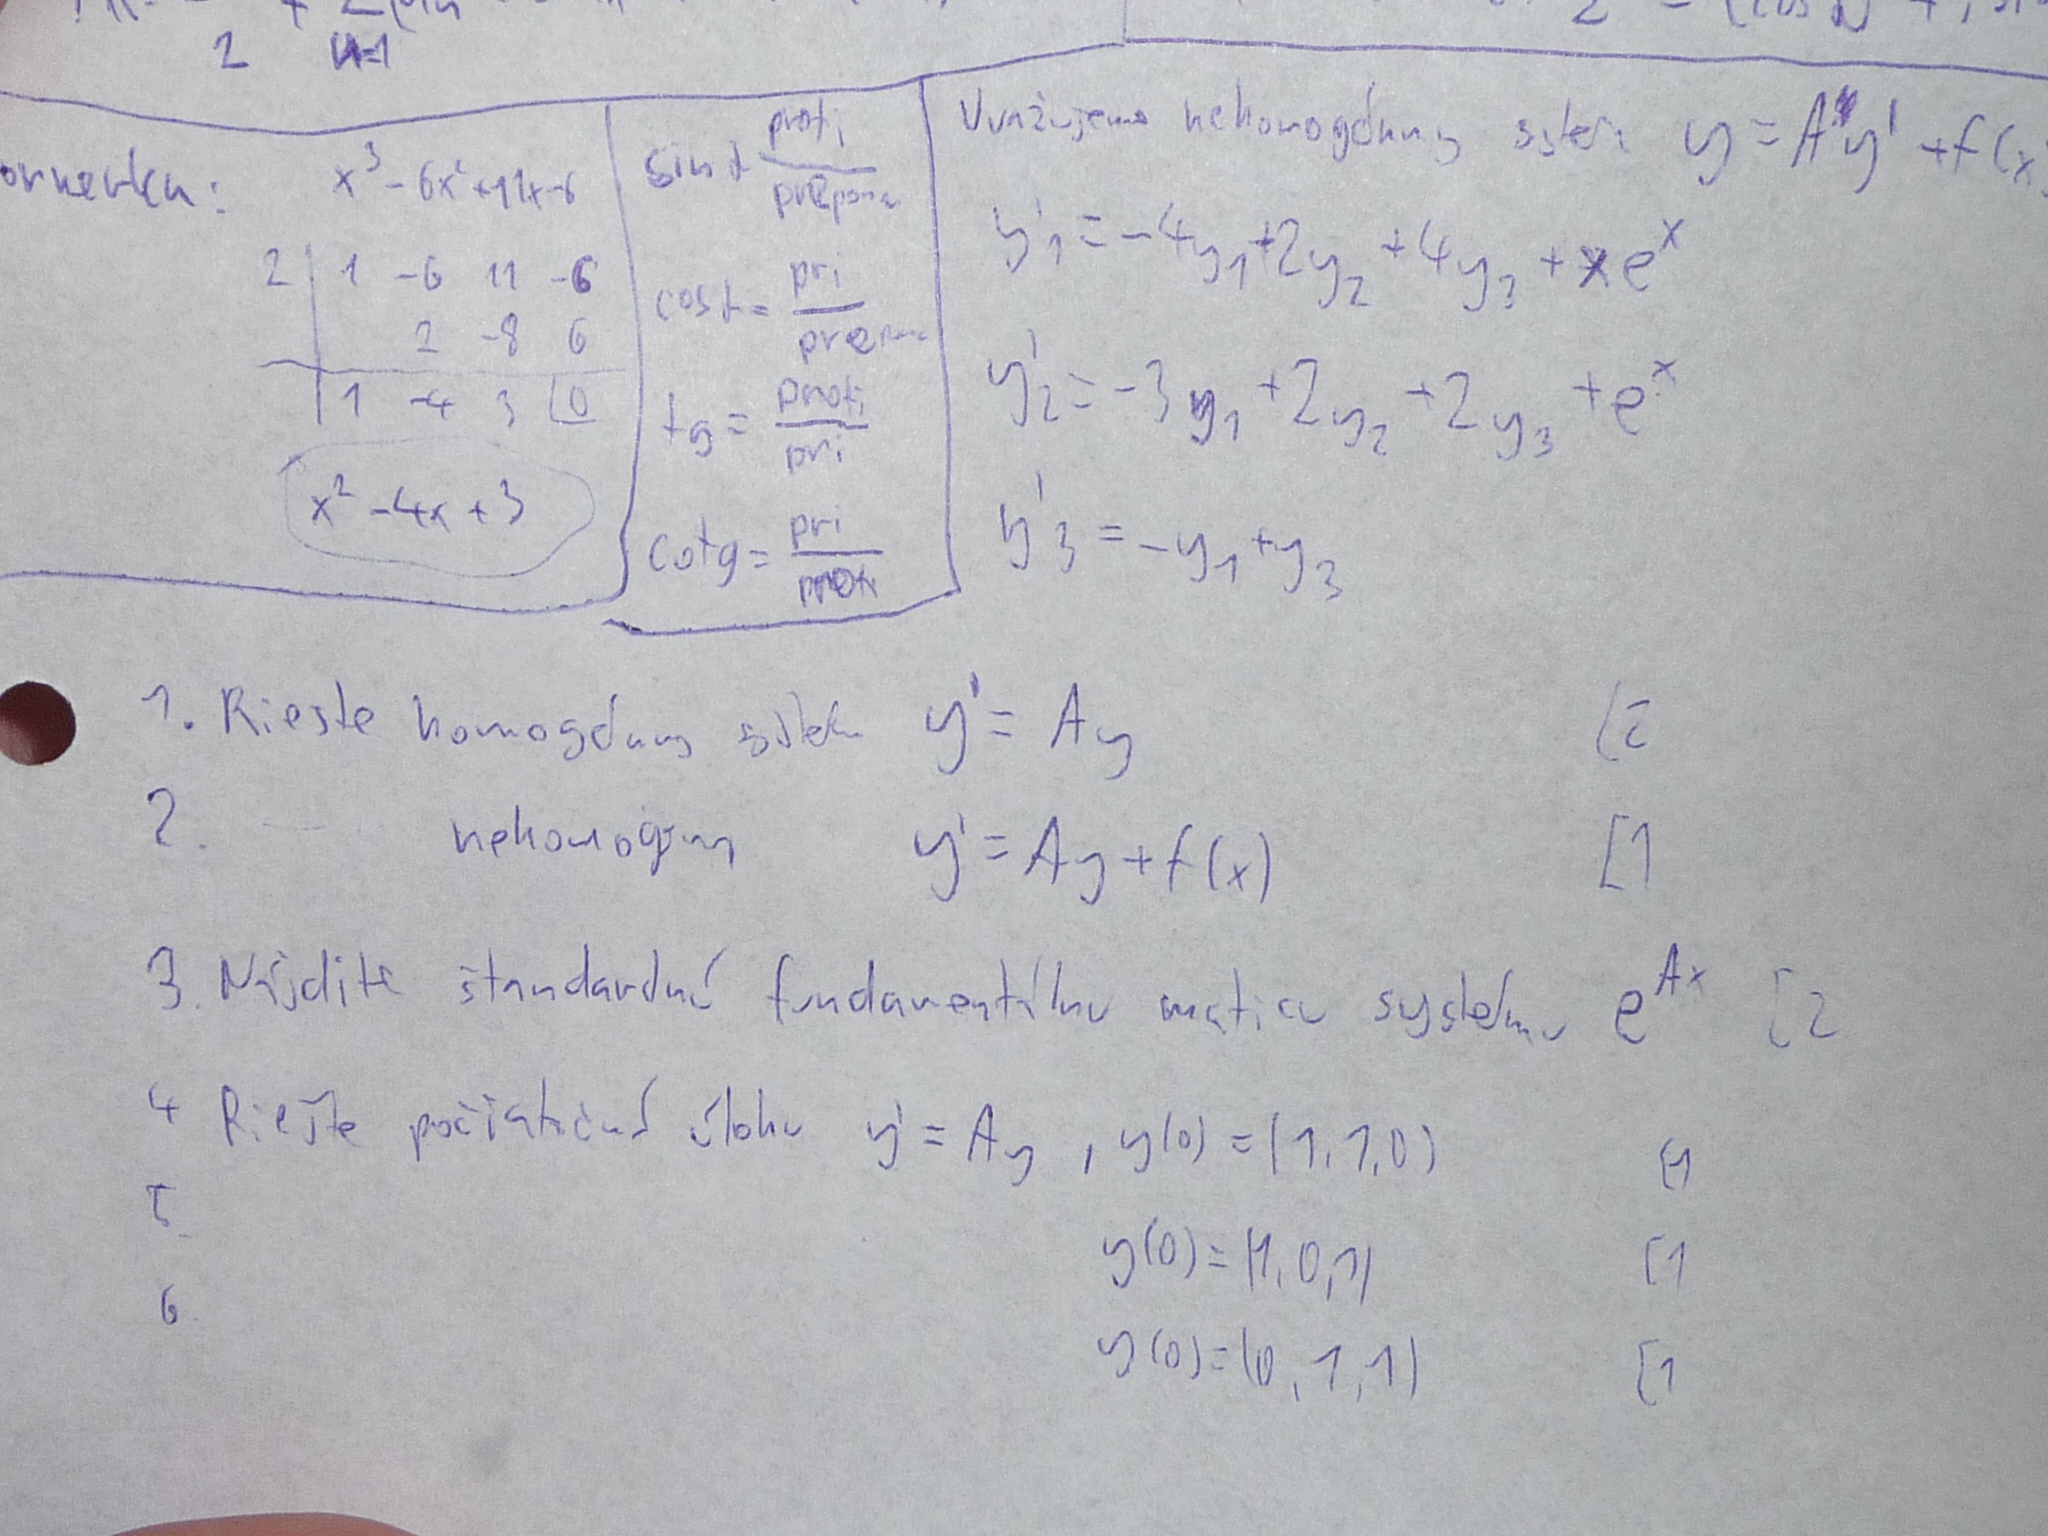 2 n=1
x³-6x²+11x-6
2 | 1 -6 11 -6
2 -8 6
1 -4 3 |0
x²-4x+3
sin α proti / prepona
cos α = pri / prepona
tg = proti / pri
cotg = pri / proti
Uvažujeme nehomogénny systém y = A y' + f(x)
y'1 = -4y1 + 2y2 + 4y3 + xe^x
y'2 = -3y1 + 2y2 + 2y3 + e^x
y'3 = -y1 + y3
1. Riešte homogénny systém y' = Ay
2. nehomogénny y' = Ay + f(x) [1
3. Nájdite štandardnú fundamentálnu maticu systému e^Ax [2
4 Riešte počiatočnú úlohu y' = Ay, y(0) = (1,1,0) [1
5. y(0) = (1,0,1) [1
6. y(0) = (0,1,1) [1